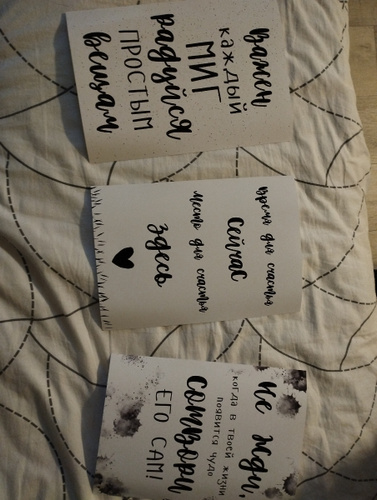 важен
каждый
МИГ
радуйся
ПРОСТЫМ
вещам
время для счастья
сейчас
место для счастья
здесь
не жди,
когда в твоей жизни
появится чудо
сотвори
ЕГО САМ!